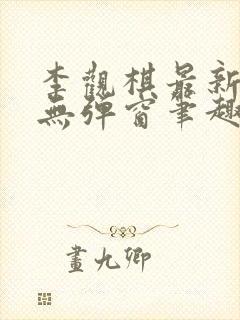 李觀棋最新
無彈窗筆趣
畫九卿